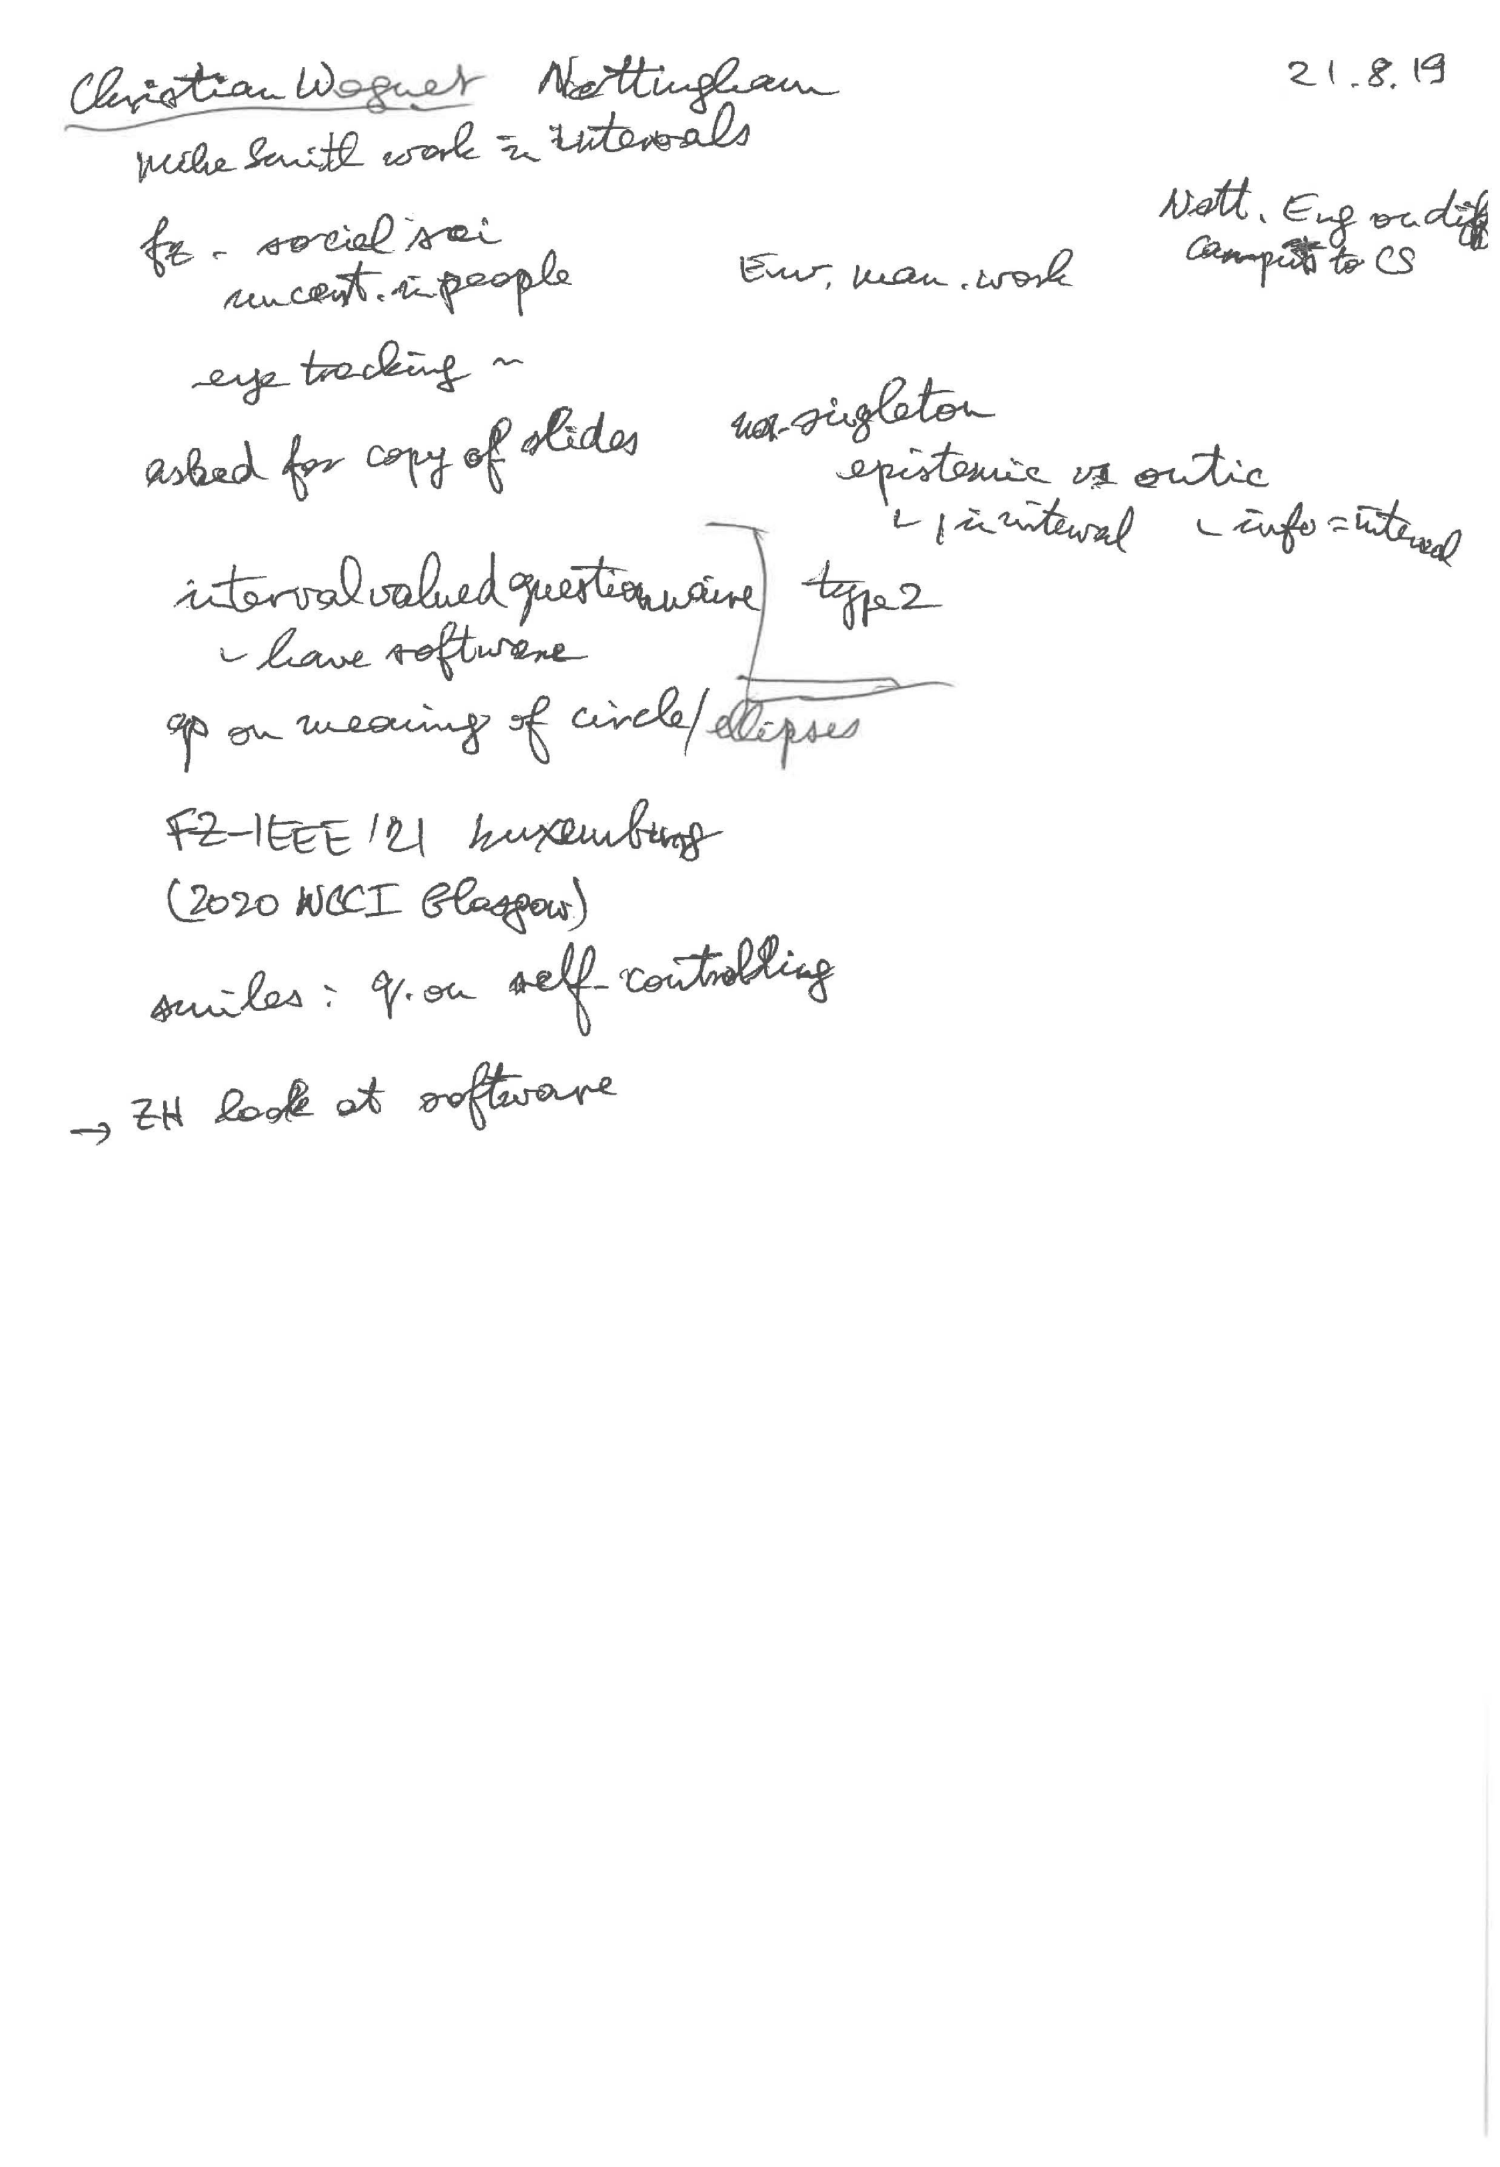 Christian Wagner Nottingham 21.8.19
Mike Smith work in intervals
Nott. Eng on diff
campus to CS
fz - social sci
uncert. in people
Env. man. work
eye tracking ~
asked for copy of slides
non-singleton
epistemic vs ontic
- 1 in interval - info = interval
interval valued questionnaire type 2
- have software
qp on meaning of circle/ellipses
FZ-IEEE '21 Luxemburg
(2020 WCCI Glasgow)
smiles: q. on self-controlling
→ ZH look at software